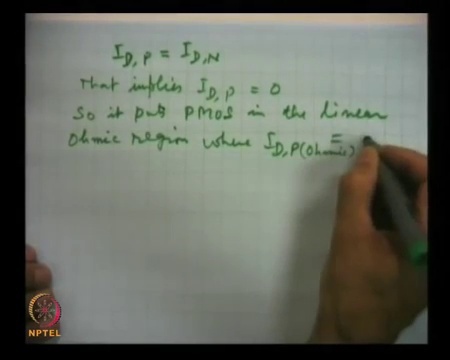 I_D,P = I_D,N
That implies I_D,P = 0
So it puts PMOS in the linear
Ohmic region where I_D,P(Ohmic) =
NPTEL